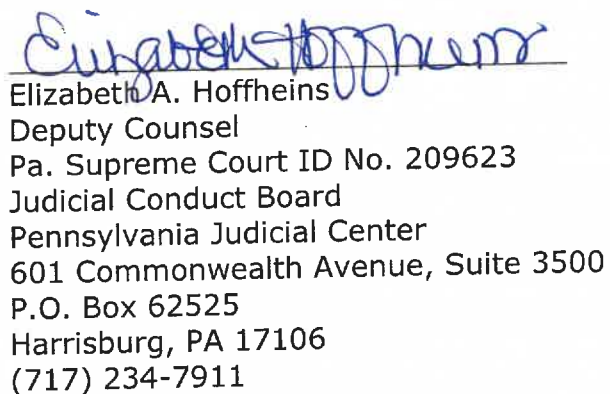 Elizabeth Hoffheins
Elizabeth A. Hoffheins
Deputy Counsel
Pa. Supreme Court ID No. 209623
Judicial Conduct Board
Pennsylvania Judicial Center
601 Commonwealth Avenue, Suite 3500
P.O. Box 62525
Harrisburg, PA 17106
(717) 234-7911